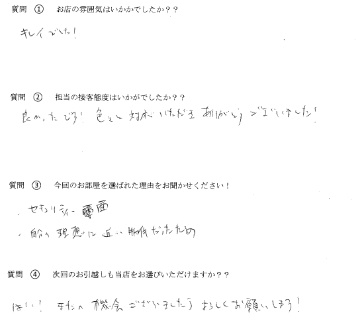 質問 ① お店の雰囲気はいかかでしたか？？
キレイでした！
質問 ② 担当の接客態度はいかがでしたか？？
良かったです 色々と 対応 いただき ありがとう ございました！
質問 ③ 今回のお部屋を選ばれた理由をお聞かせください！
・セキュリティー面
・自分の理想に近い物件だったため
質問 ④ 次回のお引越しも当店をお選びいただけますか？？
はい！ また 機会 ございましたら よろしくお願いします！